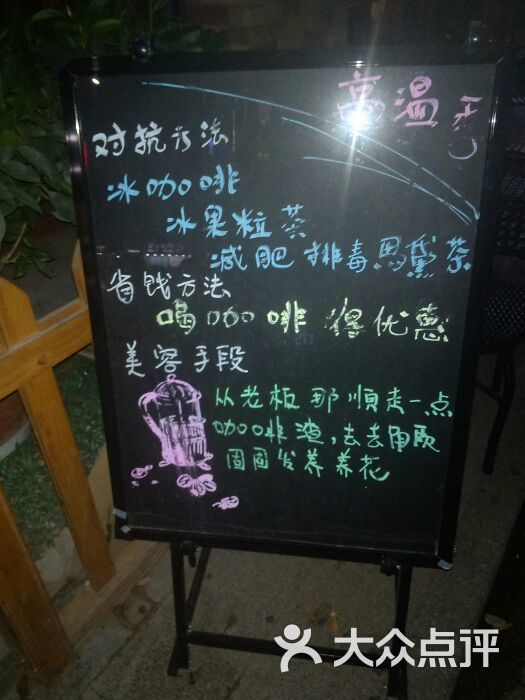 高温天气
对抗方法
冰咖啡
冰果粒茶
减肥排毒马黛茶
省钱方法
喝咖啡得优惠
美容手段
从老板那顺走一点
咖啡渣,去去角质
固固发养养花
大众点评